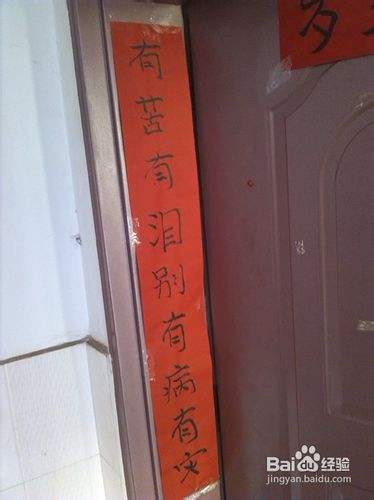 有苦有泪别有病有灾
岁
Baidu经验
jingyan.baidu.com